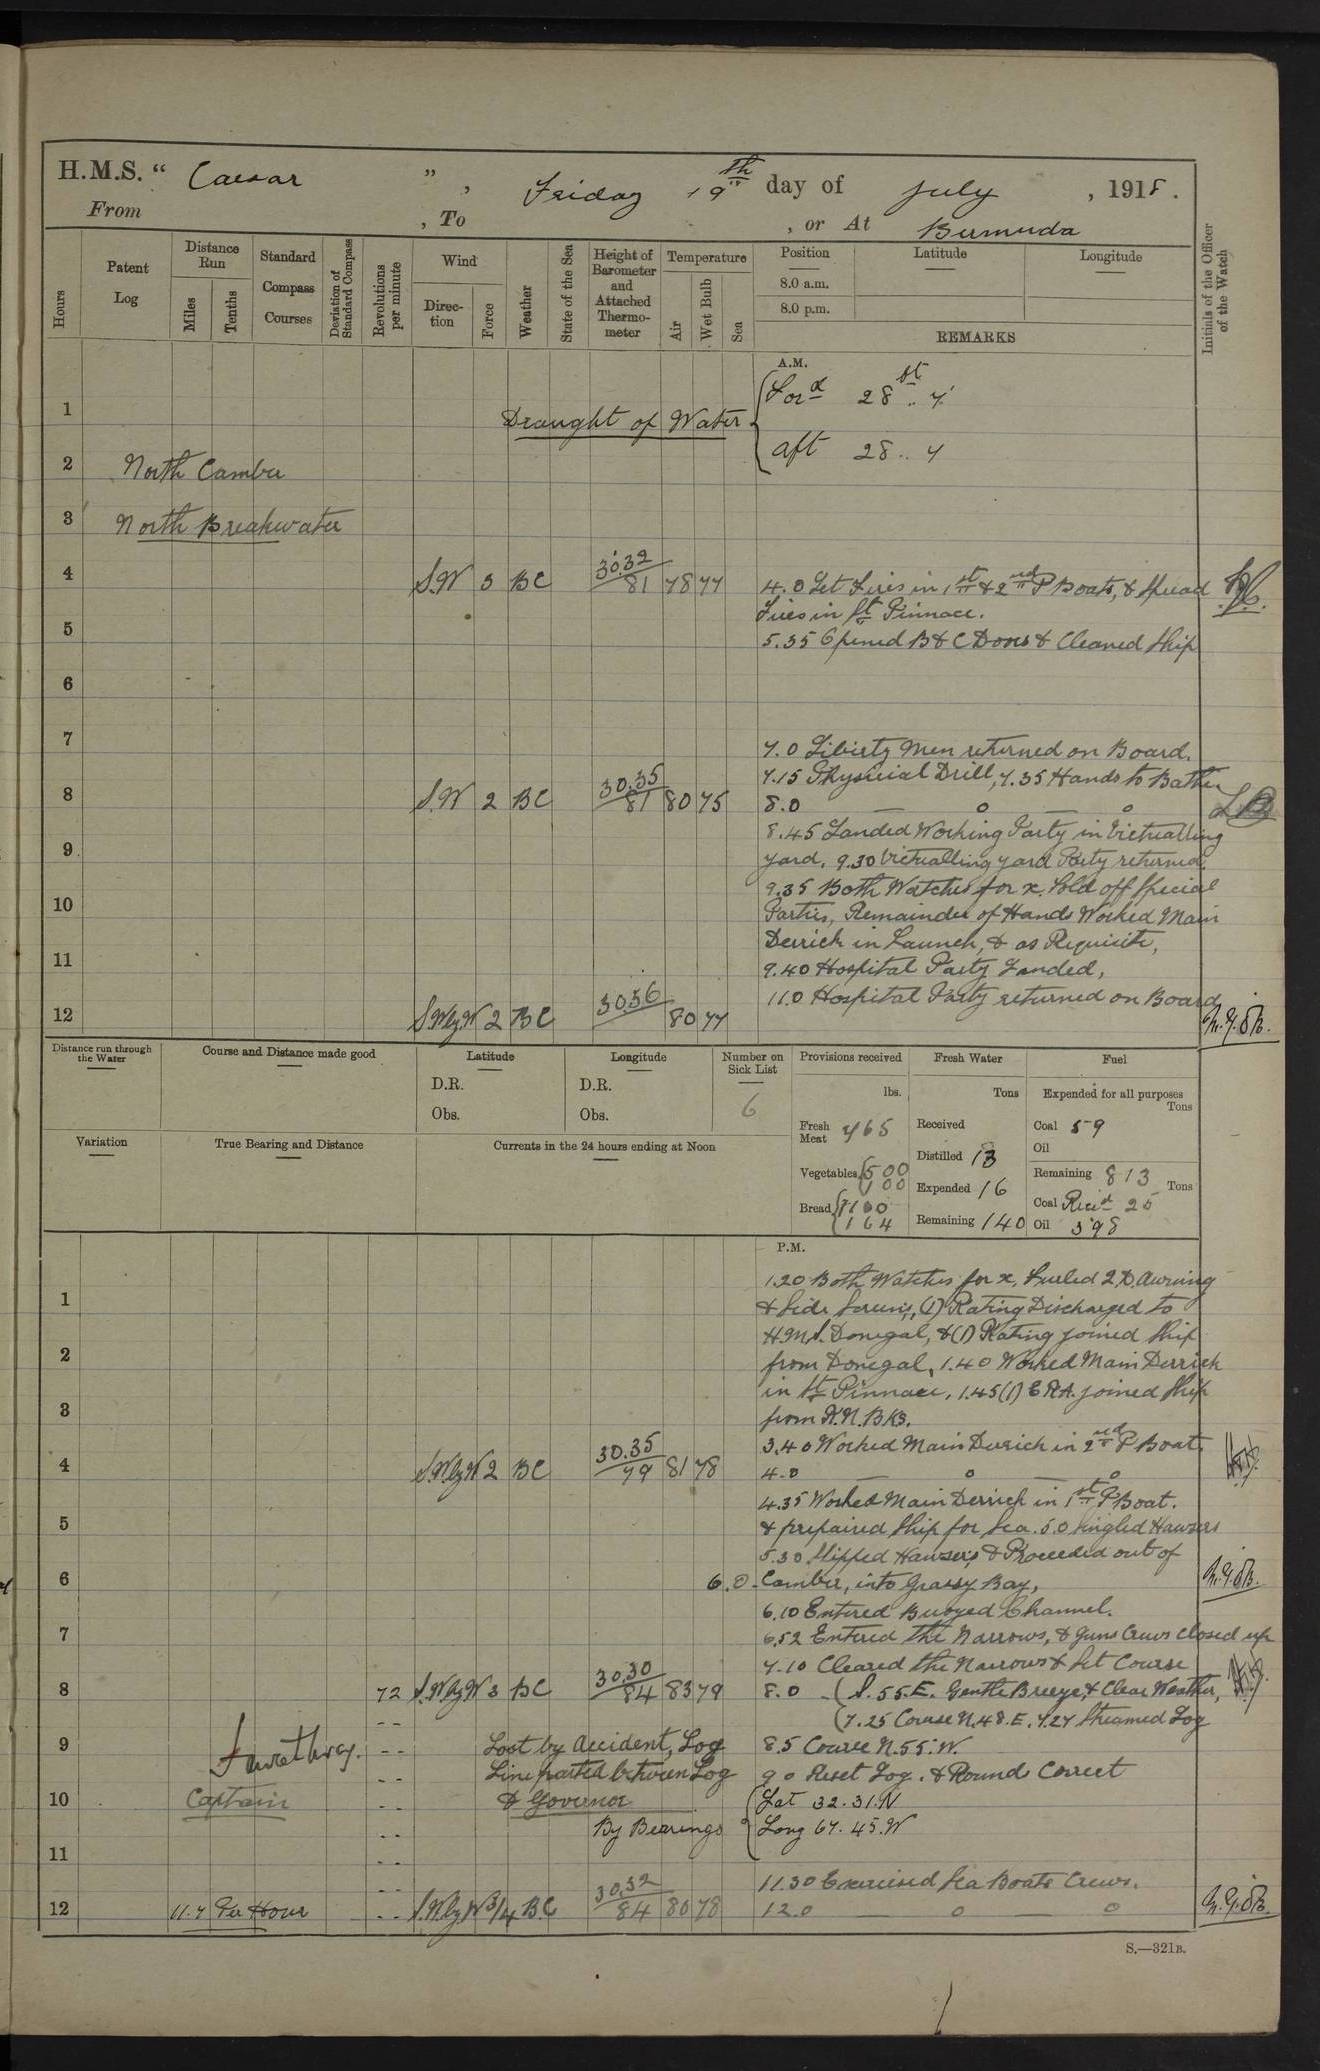 H.M.S. "Caesar", Friday 19th day of July, 1918.
From , To , or At Bermuda
Hours
Patent Log
Distance Run
Miles
Tenths
Standard Compass Courses
Deviation of Standard Compass
Revolutions per minute
Wind
Direction
Force
Weather
State of the Sea
Height of Barometer and Attached Thermometer
Temperature
Air
Wet Bulb
Sea
Position
Latitude
Longitude
8.0 a.m.
8.0 p.m.
REMARKS
Initials of the Officer of the Watch
A.M.
1 Draught of Water { For'd 28ft .. 4
aft 28 .. 4
2 North Camber
3 North Breakwater
4 S.W 3 BC 30.32 81 78 77 4.0 Let Fires in 1st & 2nd P Boats, & Spread
Fires in St Pinnace.
5
5.35 Opened B & C Doors & Cleaned Ship
6
7
7.0 Liberty Men returned on Board.
7.15 Physicial Drill, 7.35 Hands to Bathe
8 S.W 2 BC 30.35 81 80 75 8.0 — o — o
8.45 Landed Working Party in Victualling
9
Yard. 9.30 Victualling Yard Party returned
9.35 Both Watches for x. Told off Special
10
Parties, Remainder of Hands Worked Main
Derrick in Launch, & as Requisite,
11
9.40 Hospital Party Landed,
11.0 Hospital Party returned on Board
12 S.W by W 2 BC 30.36 80 77
Distance run through the Water
Course and Distance made good
Latitude
D.R.
Obs.
Longitude
D.R.
Obs.
Number on Sick List
6
Provisions received
lbs.
Fresh Meat 465
Vegetables { 500
100
Bread { 1100
164
Fresh Water
Tons
Received
Distilled 13
Expended 16
Remaining 140
Fuel
Expended for all purposes
Tons
Coal 59
Oil
Remaining 813 Tons
Coal Rec'd 25
Oil 398
Variation
True Bearing and Distance
Currents in the 24 hours ending at Noon
P.M.
1.20 Both Watches for x. Furled Q.D. Awning
1
& Side Screens, (1) Rating Discharged to
H.M.S. Donegal, & (1) Rating joined Ship
2
from Donegal, 1.40 Worked Main Derrick
in St Pinnace, 1.45 (1) E.R.A. joined Ship
3
from R.N. Bks.
3.40 Worked Main Derrick in 2nd P Boat.
4 S.W by W 2 BC 30.35 79 81 78 4.0 — o — o
4.35 Worked Main Derrick in 1st P Boat.
5
& prepaired Ship for Sea. 5.0 Singled Hawsers
5.30 Slipped Hawsers & Proceeded out of
6 6.0. Camber, into Grassy Bay,
6.10 Entered Buoyed Channel.
7
6.52 Entered the Narrows, & Guns Crews closed up
7.10 Cleared the Narrows & Set Course
8 72 S.W by W 3 BC 30.30 84 83 79 8.0 { S.55.E. Gentle Breeze & Clear Weather,
(7.25 Course N.48.E. 7.27 Streamed Log
9 Lost by Accident, Log 8.5 Course N.55.W.
Line parted between Log 9.0 Reset Log. & Rounds Correct
10 Captain & Governor { Lat 32.31.N
By Bearings Long 64.45.W
11
11.30 Exercised Sea Boats Crews.
12 11.4 Per Hour S.W by W 3/4 BC 30.32 84 80 78 12.0 o — o
S.—321B.